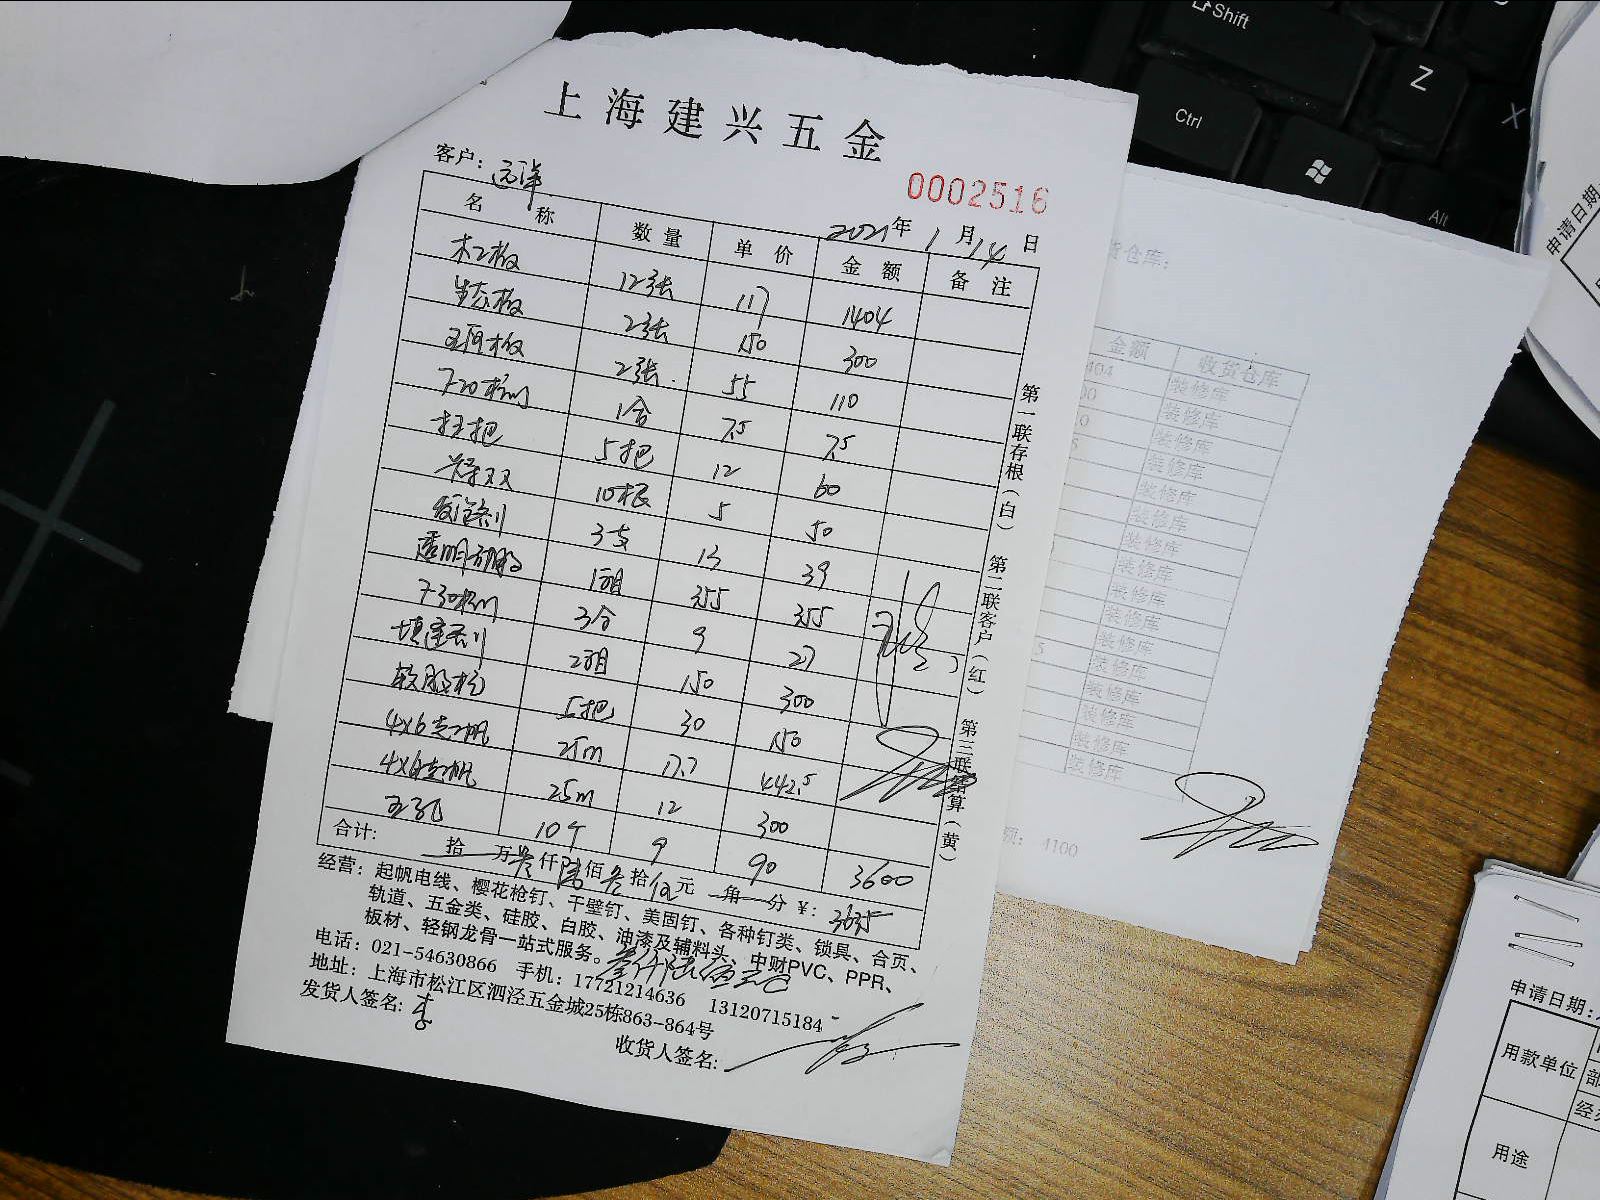 上海建兴五金
客户：远洋
0002516
2021年1月14日
名称 数量 单价 金额 备注
木工板 12张 117 1404
生态板 2张 150 300
石膏板 2张 55 110
T20枪钉 1合 7.5 7.5
扫把 5把 12 60
10根 5 50
3支 13 39
1组 355 355
T30枪钉 3合 9 27
填缝剂 2组 150 300
软胶枪 5把 30 150
4x6起帆 25m 17.7 442.5
25m 12 300
五孔 10个 9 90 3600
合计： 拾 万叁仟陆佰叁拾伍元 角 分 ¥: 3635
经营：起帆电线、樱花枪钉、干壁钉、美固钉、各种钉类、锁具、合页、
轨道、五金类、硅胶、白胶、油漆及辅料头、中财PVC、PPR、
板材、轻钢龙骨一站式服务。叁仟陆佰元
电话：021-54630866 手机：17721214636 13120715184
地址：上海市松江区泗泾五金城25栋863-864号
发货人签名：李
收货人签名：
第一联存根（白） 第二联客户（红） 第三联结算（黄）
仓库：
金额 收货仓库
404 装修库
00 装修库
0 装修库
5 装修库
装修库
装修库
装修库
装修库
装修库
装修库
5 装修库
装修库
装修库
装修库
装修库
额：4100
Shift
Z
X
Ctrl
Alt
申请日期
申请日期：
用款单位
部
经办
用途